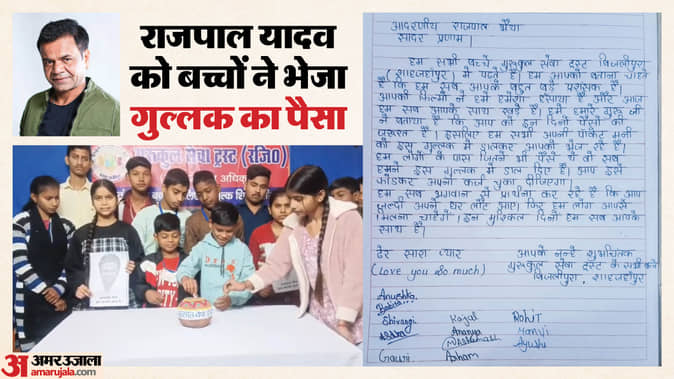 राजपाल यादव
को बच्चों ने भेजा
गुल्लक का पैसा
गुरुकुल सेवा ट्रस्ट (रजि०)
अमर उजाला
amarujala.com
आदरणीय राजपाल भैया
सादर प्रणाम।
हम सभी बच्चे गुरुकुल सेवा ट्रस्ट बिजलीपुरा
(शाहजहाँपुर) में पढ़ते हैं। हम आपको बताना चाहते
हैं कि हम सब आपके बहुत बड़े प्रशंसक हैं।
आपकी फिल्मों ने हमें हमेशा हंसाया है और आज
हम सब आपके साथ खड़े हैं। हमें हमारे गुरु जी
ने बताया है कि आप को इन दिनों पैसों की
जरूरत है। इसलिए हम सभी अपनी पॉकेट मनी
को इस गुल्लक में डालकर आपको भेज रहे हैं।
हम लोगों के पास जितने भी पैसे थे वो सब
हमने इस गुल्लक में डाल दिए हैं। आप इसे
फोड़कर अपना कर्ज चुका दीजिएगा।
हम सब भगवान से प्रार्थना कर रहे हैं कि आप
जल्दी अपने घर लौट आएं। फिर हम लोग आपसे
मिलना चाहेंगे। इन मुश्किल दिनों हम सब आपके
साथ हैं।
ढेर सारा प्यार आपके नन्हे शुभचिंतक
(Love you so much) गुरुकुल सेवा ट्रस्ट के सभी बच्चे
बिजलीपुरा, शाहजहाँपुर
Anushka
Shivangi Kajal Rohit
Ananya Manvi
Ayushi
Gauri